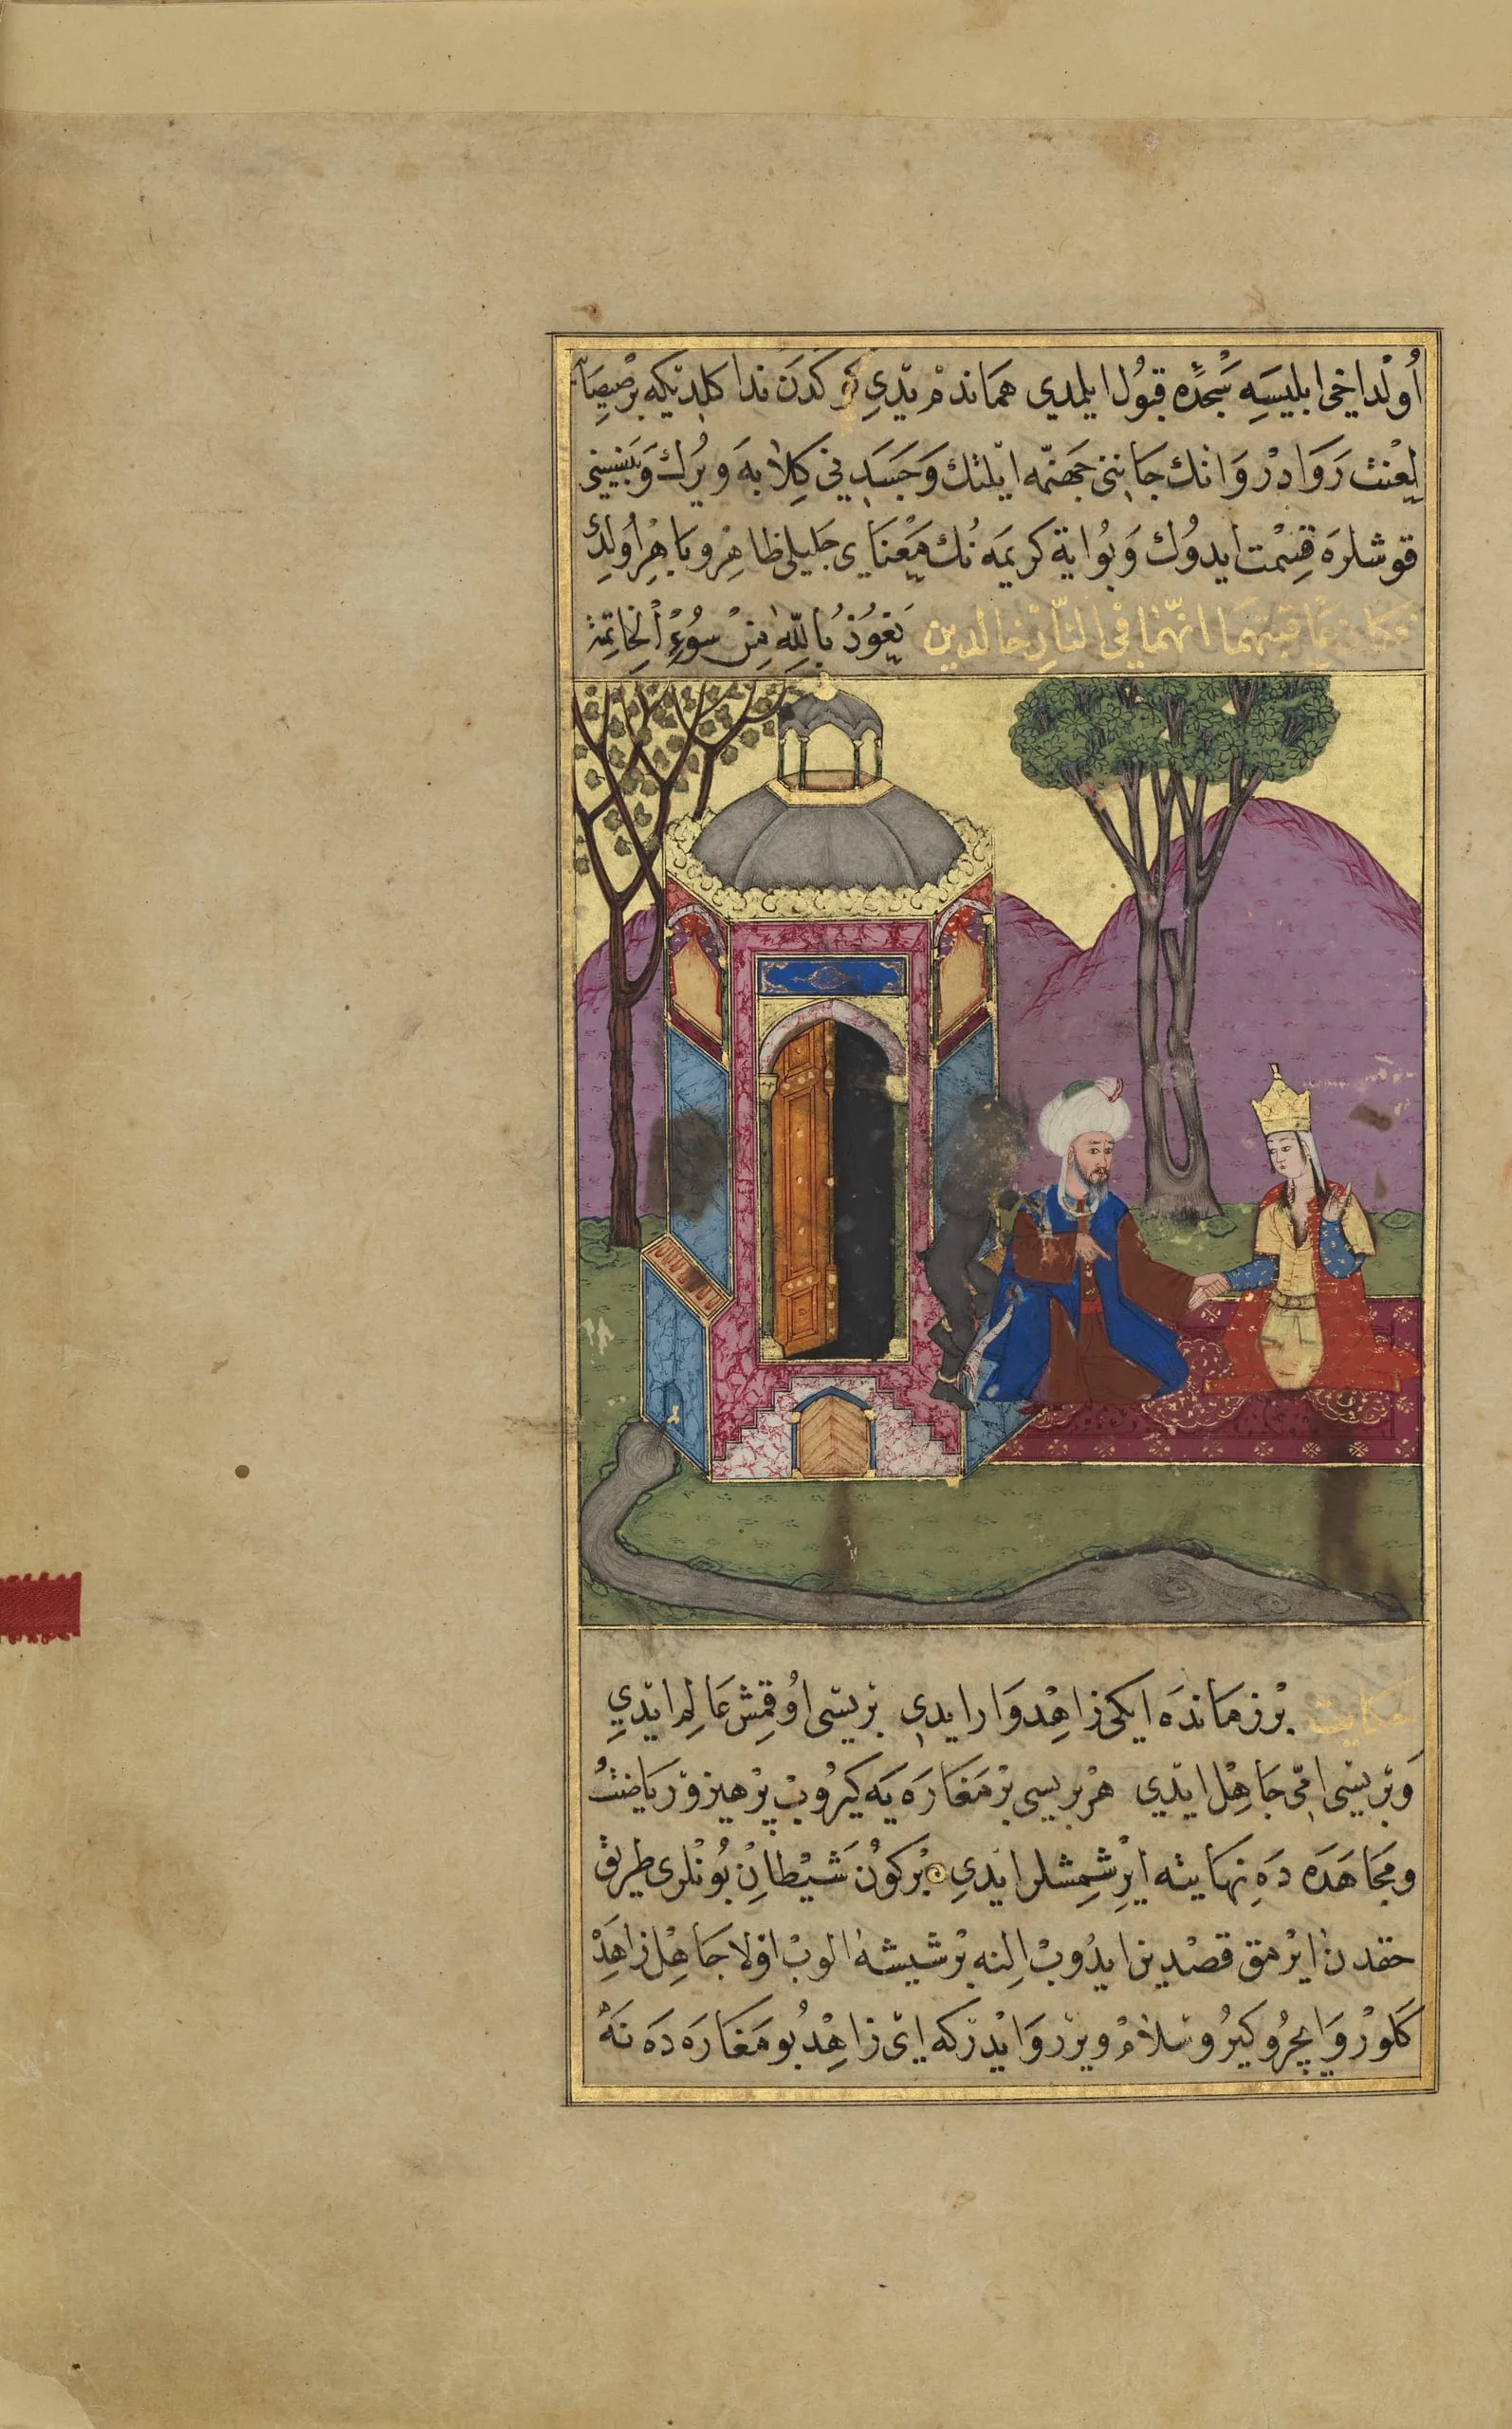 اُولدا خی ابلیسه سَجْده قبُول ایلمدی هماندم یدی کدن ندا کلدیکه برصیصا
لعنت رَوَادر وَانك جَاننی جهنّمه ایلتك وَجَسَدینی کلابه ویرك وَ
قوشلره قِسْمت ایدوُك وَبُو ایة کریمه نُك مَعْنای جلیلی ظاهِر و باهِر اُولدی
فکان عاقبتهما انّهما فی النّار خالدین نَعُوذُ بِاللّٰهِ مِنْ سُوءِ الْخَاتِمَة
حکایت بْر زمانده ایکی زاهِد وَار ایدی بریسی اوُقمِش عَالِم ایدی
وَبریسی امّی جَاهِل ایدی هر بریسی بر مَغَاره یه کیرُوب پرهیز و ریاضتُ
و مجاهَده دَه نهایته ایرِشمِشلر ایدی بْرکوُن شَیْطاَن بُونلری طریق
حقدن ایرمق قصْدین ایدُوب الِنه بْر شیشه الوب اوّلا جَاهِل زاهِدْ
کَلوُر وَایچرُو کیرُو سلام ویرر وَایدر که ای زاهِد بُو مَغَاره دَه نَه